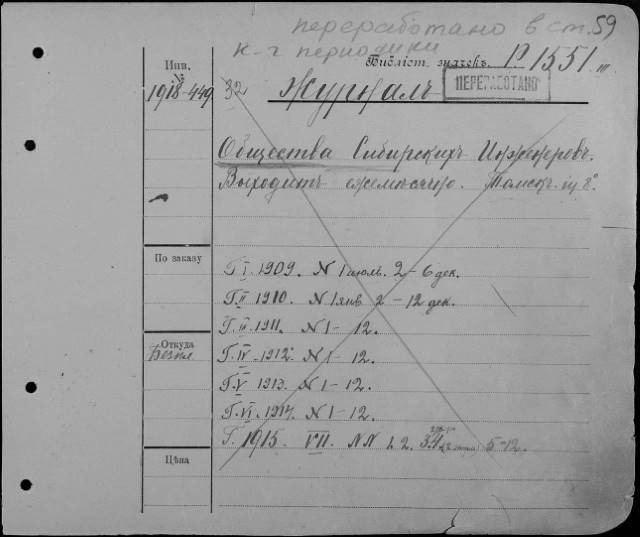 переработано в ст. 59
к-г периодики
Библіот. значекъ P 1551 III
Инв.
№
1918-449
32 Журналъ
ПЕРЕРАБОТАНО
Общества Сибирскихъ Инженеровъ.
Выходитъ ежемѣсячно. Томскъ. in 8°
По заказу
Г. I. 1909. N 1 июль. 2-6 дек.
Г. II 1910. N 1 янв 2-12 дек.
Г. III. 1911. N 1-12.
Откуда
Безпл
Г. IV. 1912. N 1-12.
Г. V 1913. N 1-12.
Г. VI. 1914. N 1-12.
Г. 1915. VII. NN 1. 2. 3.4 5-12.
Цѣна